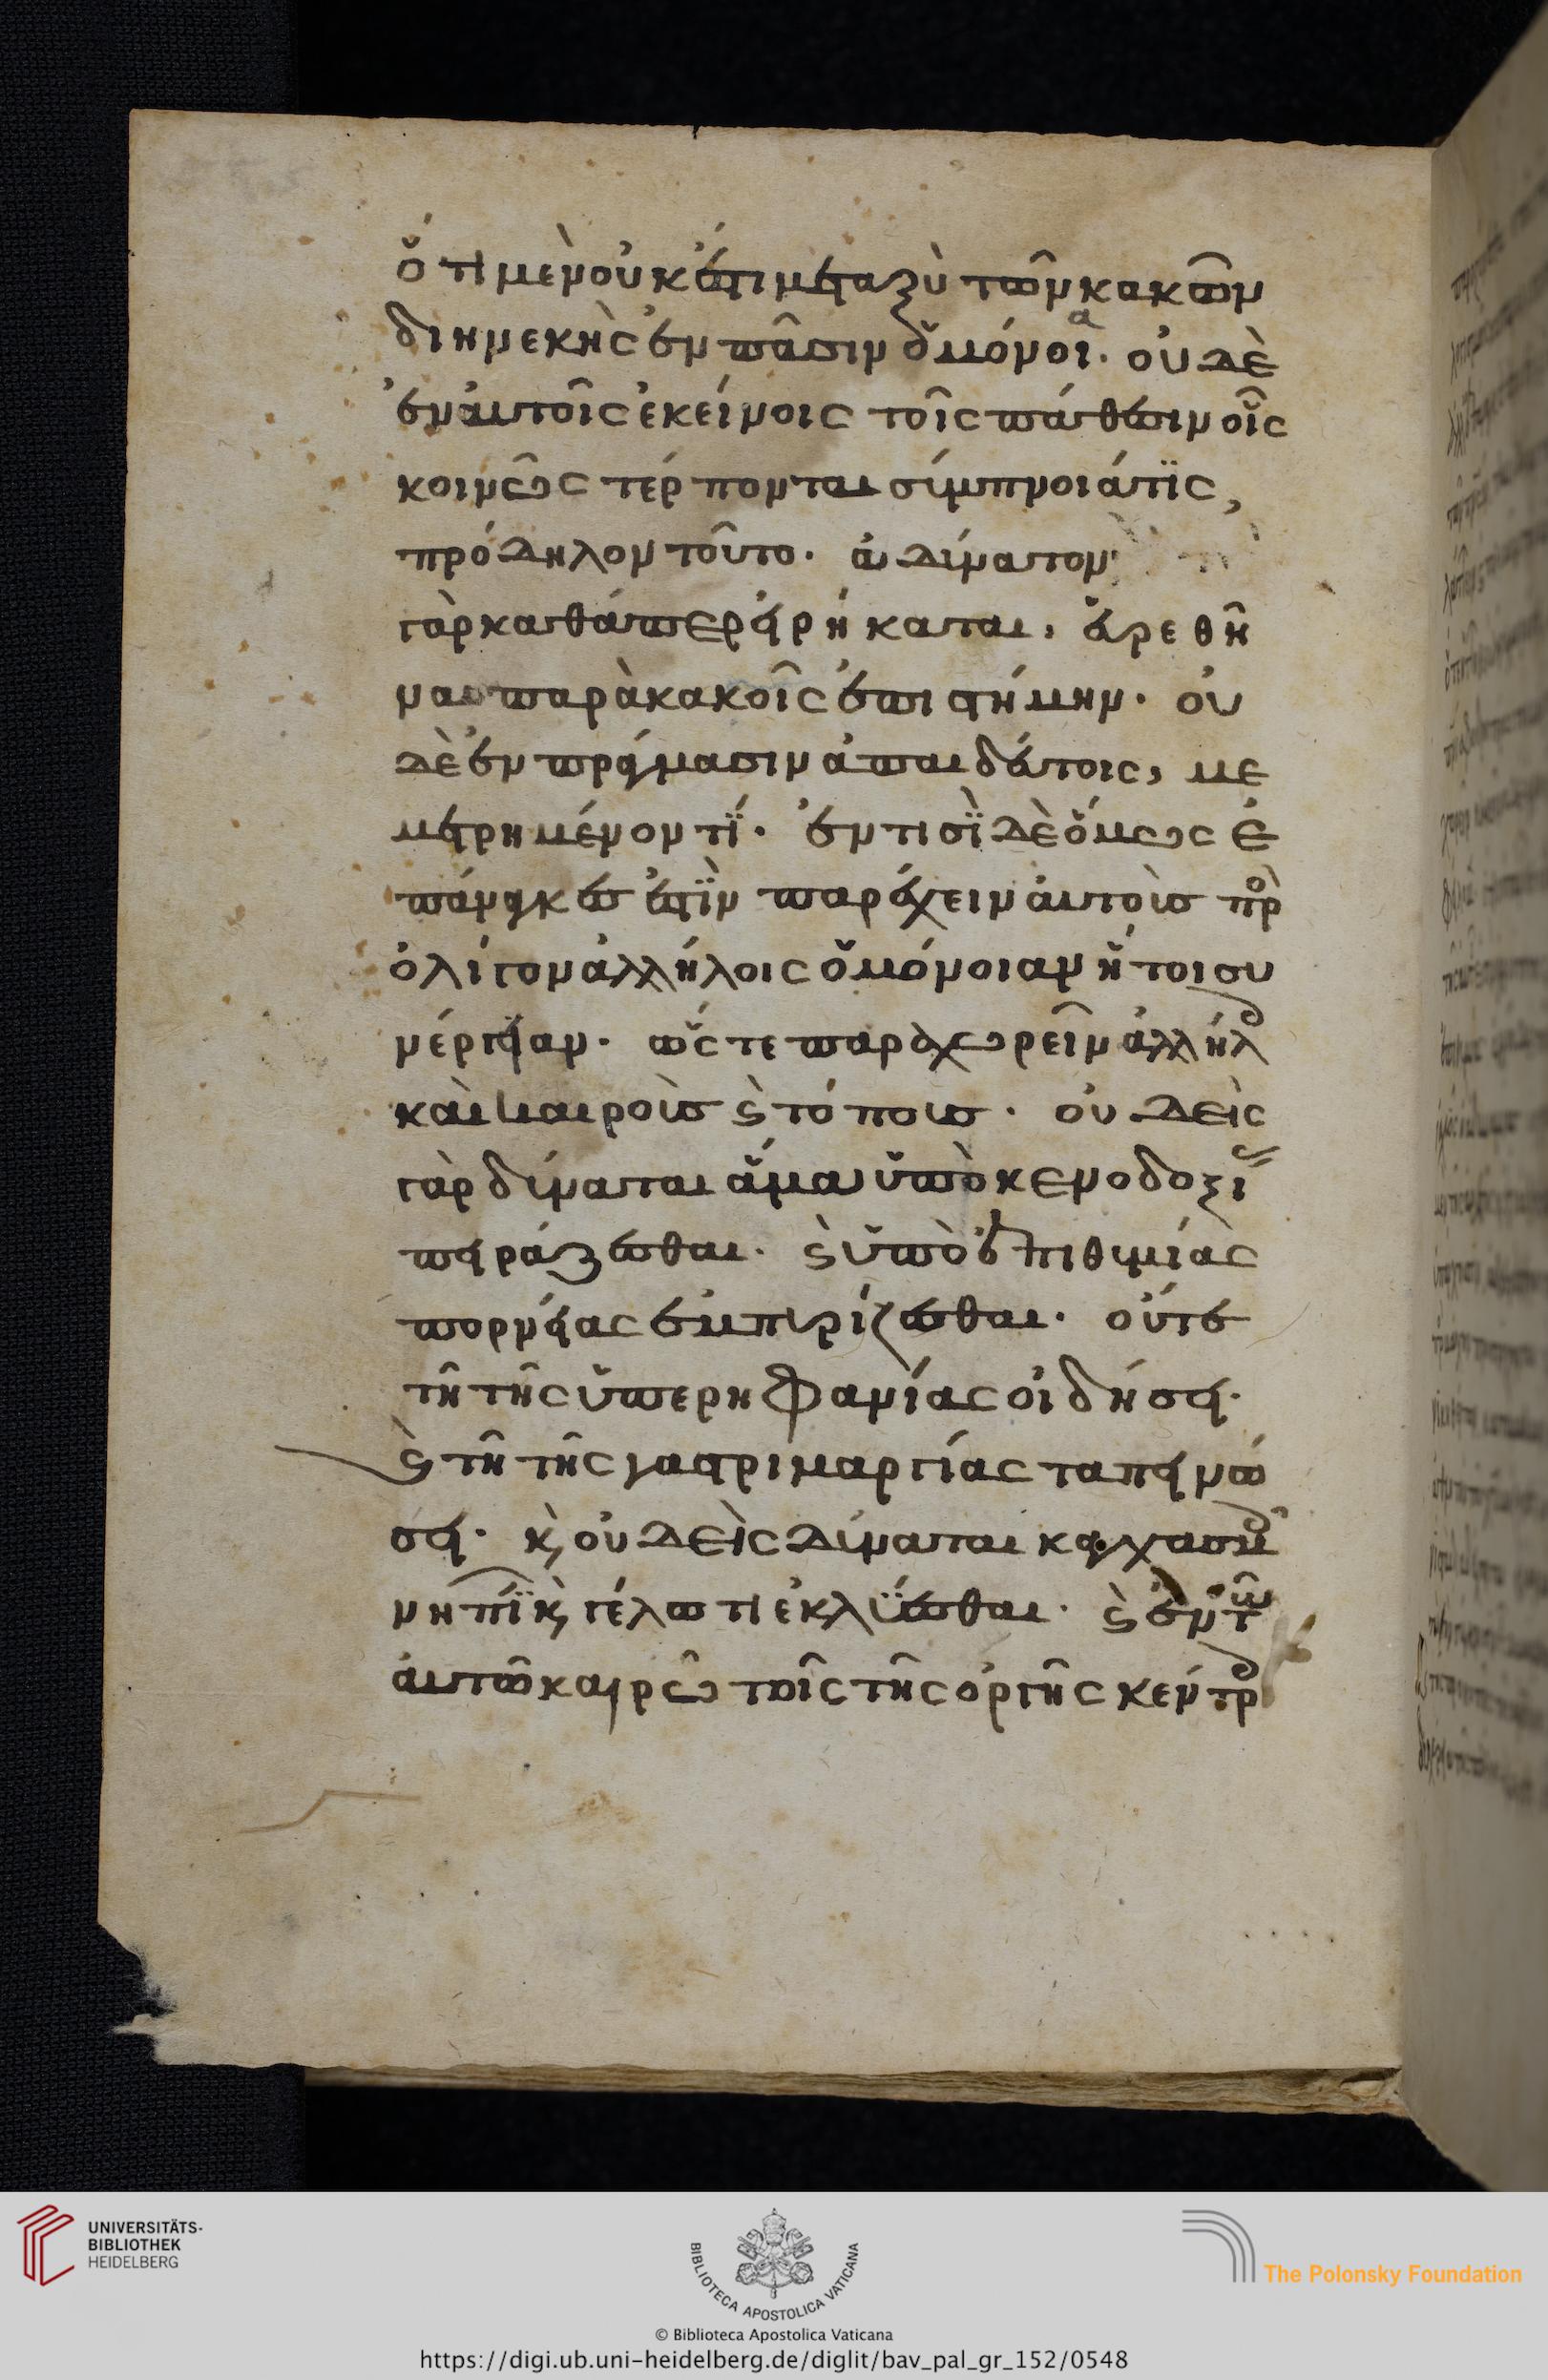 ὅτι μὲν οὐκ ἔστι μεταξὺ τῶν κακῶν
διηνεκὴς ἐν πᾶσιν ὁμόνοια. οὐδὲ
ἐν αὐτοῖς ἐκείνοις τοῖς πάθεσιν οἷς
κοινῶς τέρπονται σύμπνοιά τις,
πρόδηλον τοῦτο. ἀδύνατον
γὰρ καθάπερ εἴρηκαται, εὑρεθῆ
ναι παρὰ κακοῖς ἐπιστήμην. οὐ
δὲ ἐν πράγμασιν ἀπαιδεύτοις, με
μετρημένον τί. ἔν τισι δὲ ὅμως ἐ
πάναγκες ἐστὶν παρέχειν αὐτοὺς πρὸ
ὀλίγον ἀλλήλοις ὁμόνοιαν ἤτοι συ
νέργειαν. ὥστε παραχωρεῖν ἀλλήλ
καὶ καιροὺς ϛ τόπους. οὐδεὶς
γὰρ δύναται ἅμα ὑπὸ κενοδοξί
πειράζεσθαι. ϛ ὑπὸ ἐπιθυμίας
πορνείας ἐμπυρίζεσθαι. οὔτε
τῆ τῆς ὑπερηφανίας οἰδήσει.
ϛ τῆ τῆς γαστριμαργίας ταπεινώ
σει. κ οὐδεὶς δύναται καγχασμ
νηπίω κ γέλωτι ἐκλύεσθαι. ϛ ἐν τῶ
αὐτῶ καιρῶ τοῖς τῆς ὀργῆς κέντρ
UNIVERSITÄTS-
BIBLIOTHEK
HEIDELBERG
BIBLIOTECA APOSTOLICA VATICANA
The Polonsky Foundation
© Biblioteca Apostolica Vaticana
https://digi.ub.uni-heidelberg.de/diglit/bav_pal_gr_152/0548